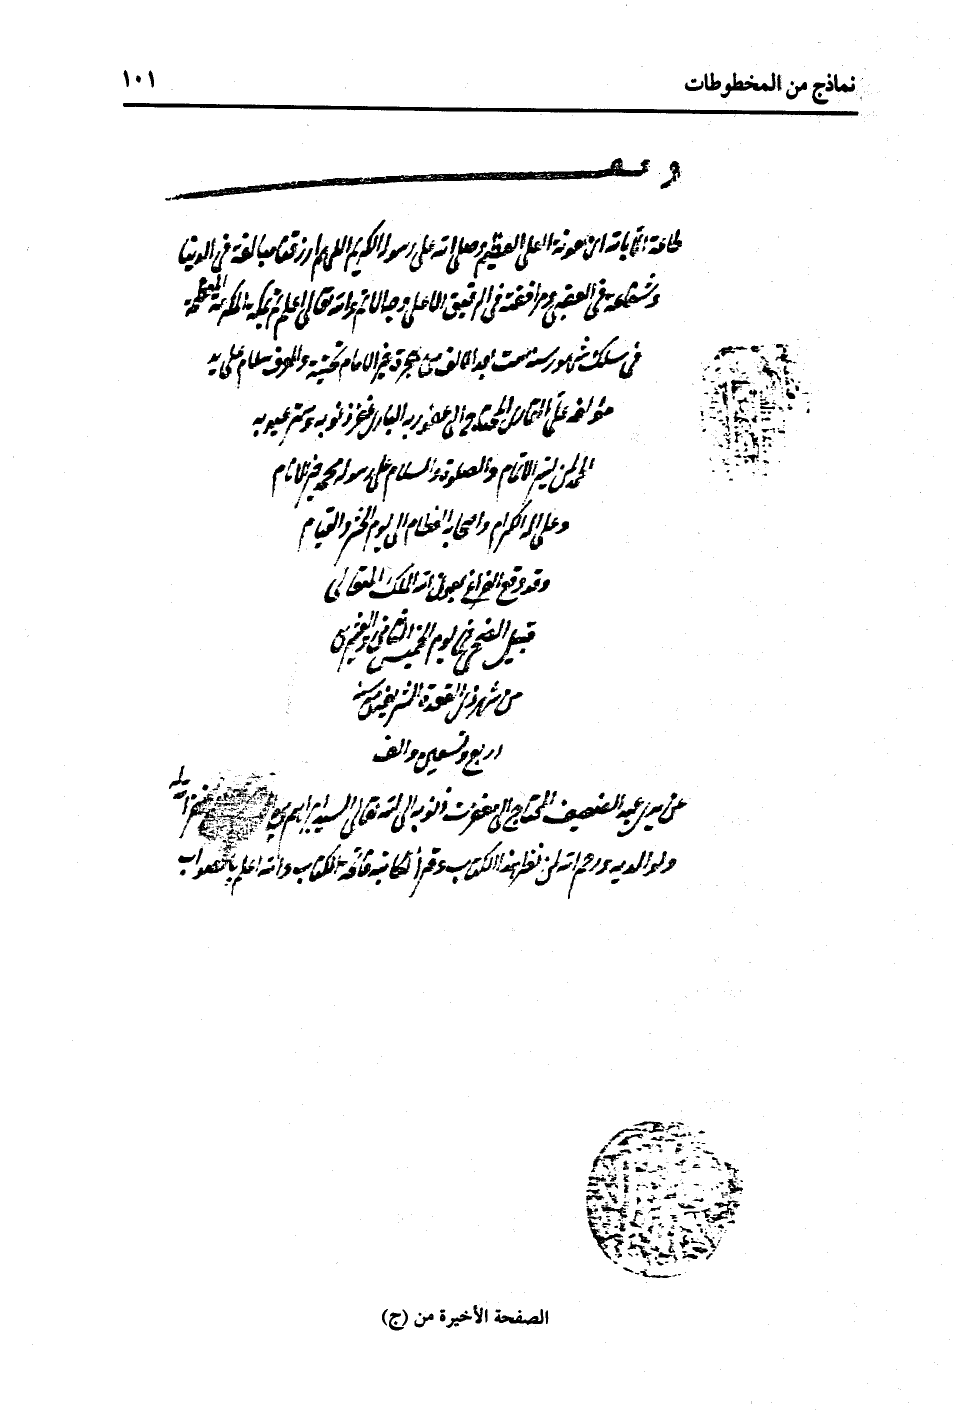 نماذج من المخطوطات ١٠١
طاعة الا باته اي بمعونة العلي العظيم وصلى الله على رسوله الكريم اللهم ارزقنا متابعته في الدنيا
وشفاعته في العقبى ومرافقته في الرفيق الاعلى والله تعالى اعلم تم بمكة المكرمة المعظمة
في سلك شهور سنة ست بعد الالف من هجرة خير الانام تحية والوف سلام على يد
مؤلفه علي القاري المحتاج الى عفو ربه الباري غفر ذنوبه وستر عيوبه
الحمد لمن يسر الاتمام والصلوة والسلام على رسوله محمد خير الانام
وعلى اله الكرام واصحابه العظام الى يوم الحشر والقيام
وقد وقع الفراغ بعون الله الملك المتعالي
قبيل الضحى في يوم الخميس الثاني والعشرين
من شهر ذي القعدة الشريفة من سنة
اربع وتسعين والف
عن يدي عبد الضعيف المحتاج الى مغفرت ذنوبه الى الله تعالى السيد ابراهيم غفر الله له
ولوالديه ورحم الله لمن نظر هذا الكتاب وقرأ لكاتبه فاتحة الكتاب والله اعلم بالصواب
الصفحة الأخيرة من (ج)